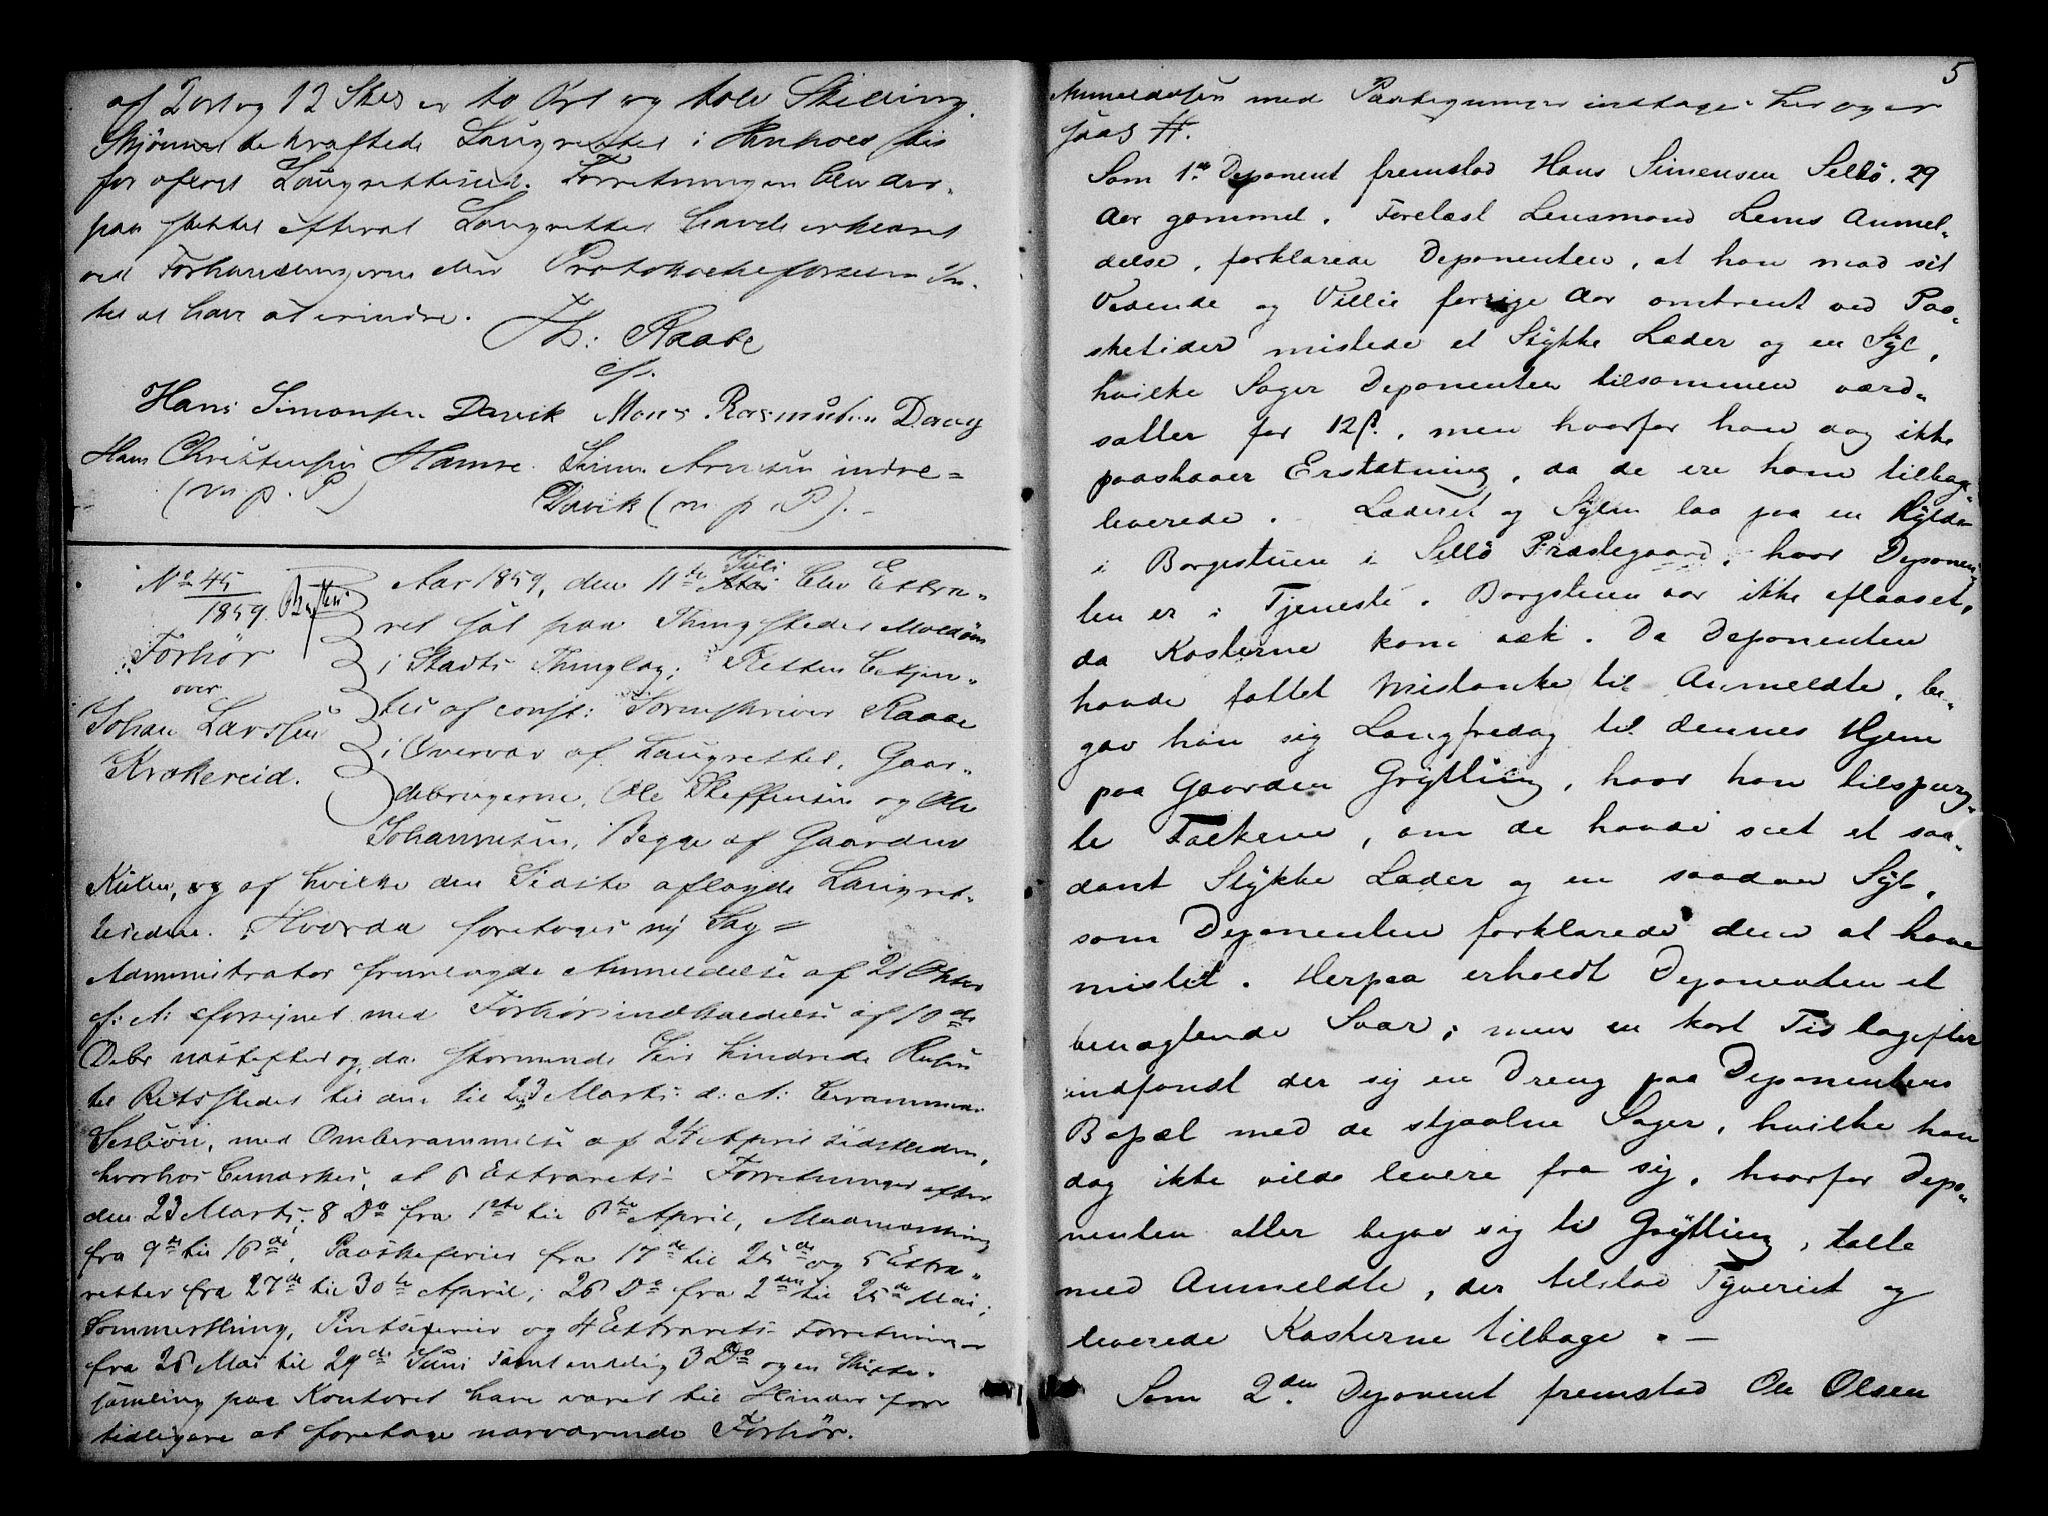 af 2 ort og 12 Skes er to Ort og tolv Skilling.
Skjönnet bekræftede Laugrettet i Henhold til
før aflagt Laugrettesed. Forretningen blev der-
paa sluttet efterat Laugrettet havde erklæret
ved Forhandlingerne eller Protokollationen In-
tet at have at erindre.
Th: Raabe
cst.
Hans Simonsen Davik Mons Rasmusen
Hans Christensen Hamre. Arnesen indre=
(m. p. P) Davik (m. p. P).-
No 45
1859.
Forhör
over
Johan Larssen
Krokereid.
Aar 1859, den 11te Juli blev Extra-
ret sat paa Thingstedet Moldöen
i Stadts Thinglag; Retten betjen-
tes af const: Sorenskriver Raabe
i Overvær af Laugrettet, Gaar-
debrugerne, Ole Steffensen og Ole
Johannesen, Begge af Gaarden
og af hvilke den Sidste aflagde Laugret-
tesedene. Hvorda foretoges ny Sag =
Administrator fremlagde Anmeldelse af 21 Oktbr
f: A: forsynet med Forhörsindkaldelse af 10de
Debr næstefter og, da stormende Veir hindrede Reisen
til Retsstedet til den til 23 Marts d: A: berammede
Session, med Omberammelse af 24 April sidstleden,
hvorhos bemærkes, at 6 Extrarets Forretninger efter
den 23 Marts; 8 Do fra 1ste til 6te April, Maanedsthing
fra 9de til 16de, Paaskeferier fra 17de til 25de og 5 Extra-
retter fra 27de til 30te April; 26 Do fra 2den til 25de Mai;
Sommerthing, Pintseferier og 4 Extrarets Forretninger
fra 26 Mai til 29de Juni samt endelig 3 Do og en Skifte-
samling paa Kontoret have været til Hinder for
tidligere at foretage nærværende Forhör.
5
Anmeldelsen med Paategninger indtages her og er
saa #.
Som 1ste Deponent fremstod Hans Simensen Sellö, 29
Aar gammel. Forelæst Lensmand Lems Anmel-
delse, forklarede Deponenten, at han mod sit
Vidende og Villie forrige Aar omtrent ved Paa-
sketider mistede et Stÿkke Læder og en Sÿl,
hvilke Sager Deponenten tilsammen værd-
sætter for 12 ß., men hvorfor han dog ikke
paastaaer Erstatning, da de ere ham tilbage-
leverede. Læderet og Sÿlen laa paa en Hÿlde
i Borgestuen i Sellö Præstegaard, hvor Deponen-
ten er i Tjeneste. Borgstuen var ikke aflaaset,
da Kosterne kom væk. Da Deponenten
havde fattet Mistanke til Anmeldte, be-
gav han sig Langfredag til dennes Hjem
paa Gaarden Grÿtting, hvor han tilspurg-
te Folkene, om de havde seet et saa-
dant Stÿkke Læder og en saadan Sÿl,
som Deponenten forklarede dem at have
mistet. Herpaa erholdt Deponenten et
benægtende Svar; men en kort Tid bagefter
indfandt der sig en Dreng paa Deponentens
Bopæl med de stjaalne Sager, hvilke han
dog ikke vilde levere fra sig, hvorfor Depo-
nenten atter begav sig til Grÿtting, talte
med Anmeldte, der tilstod Tÿveriet og
leverede Kosterne tilbage. —
Som 2den Deponent fremstod Ole Olsen